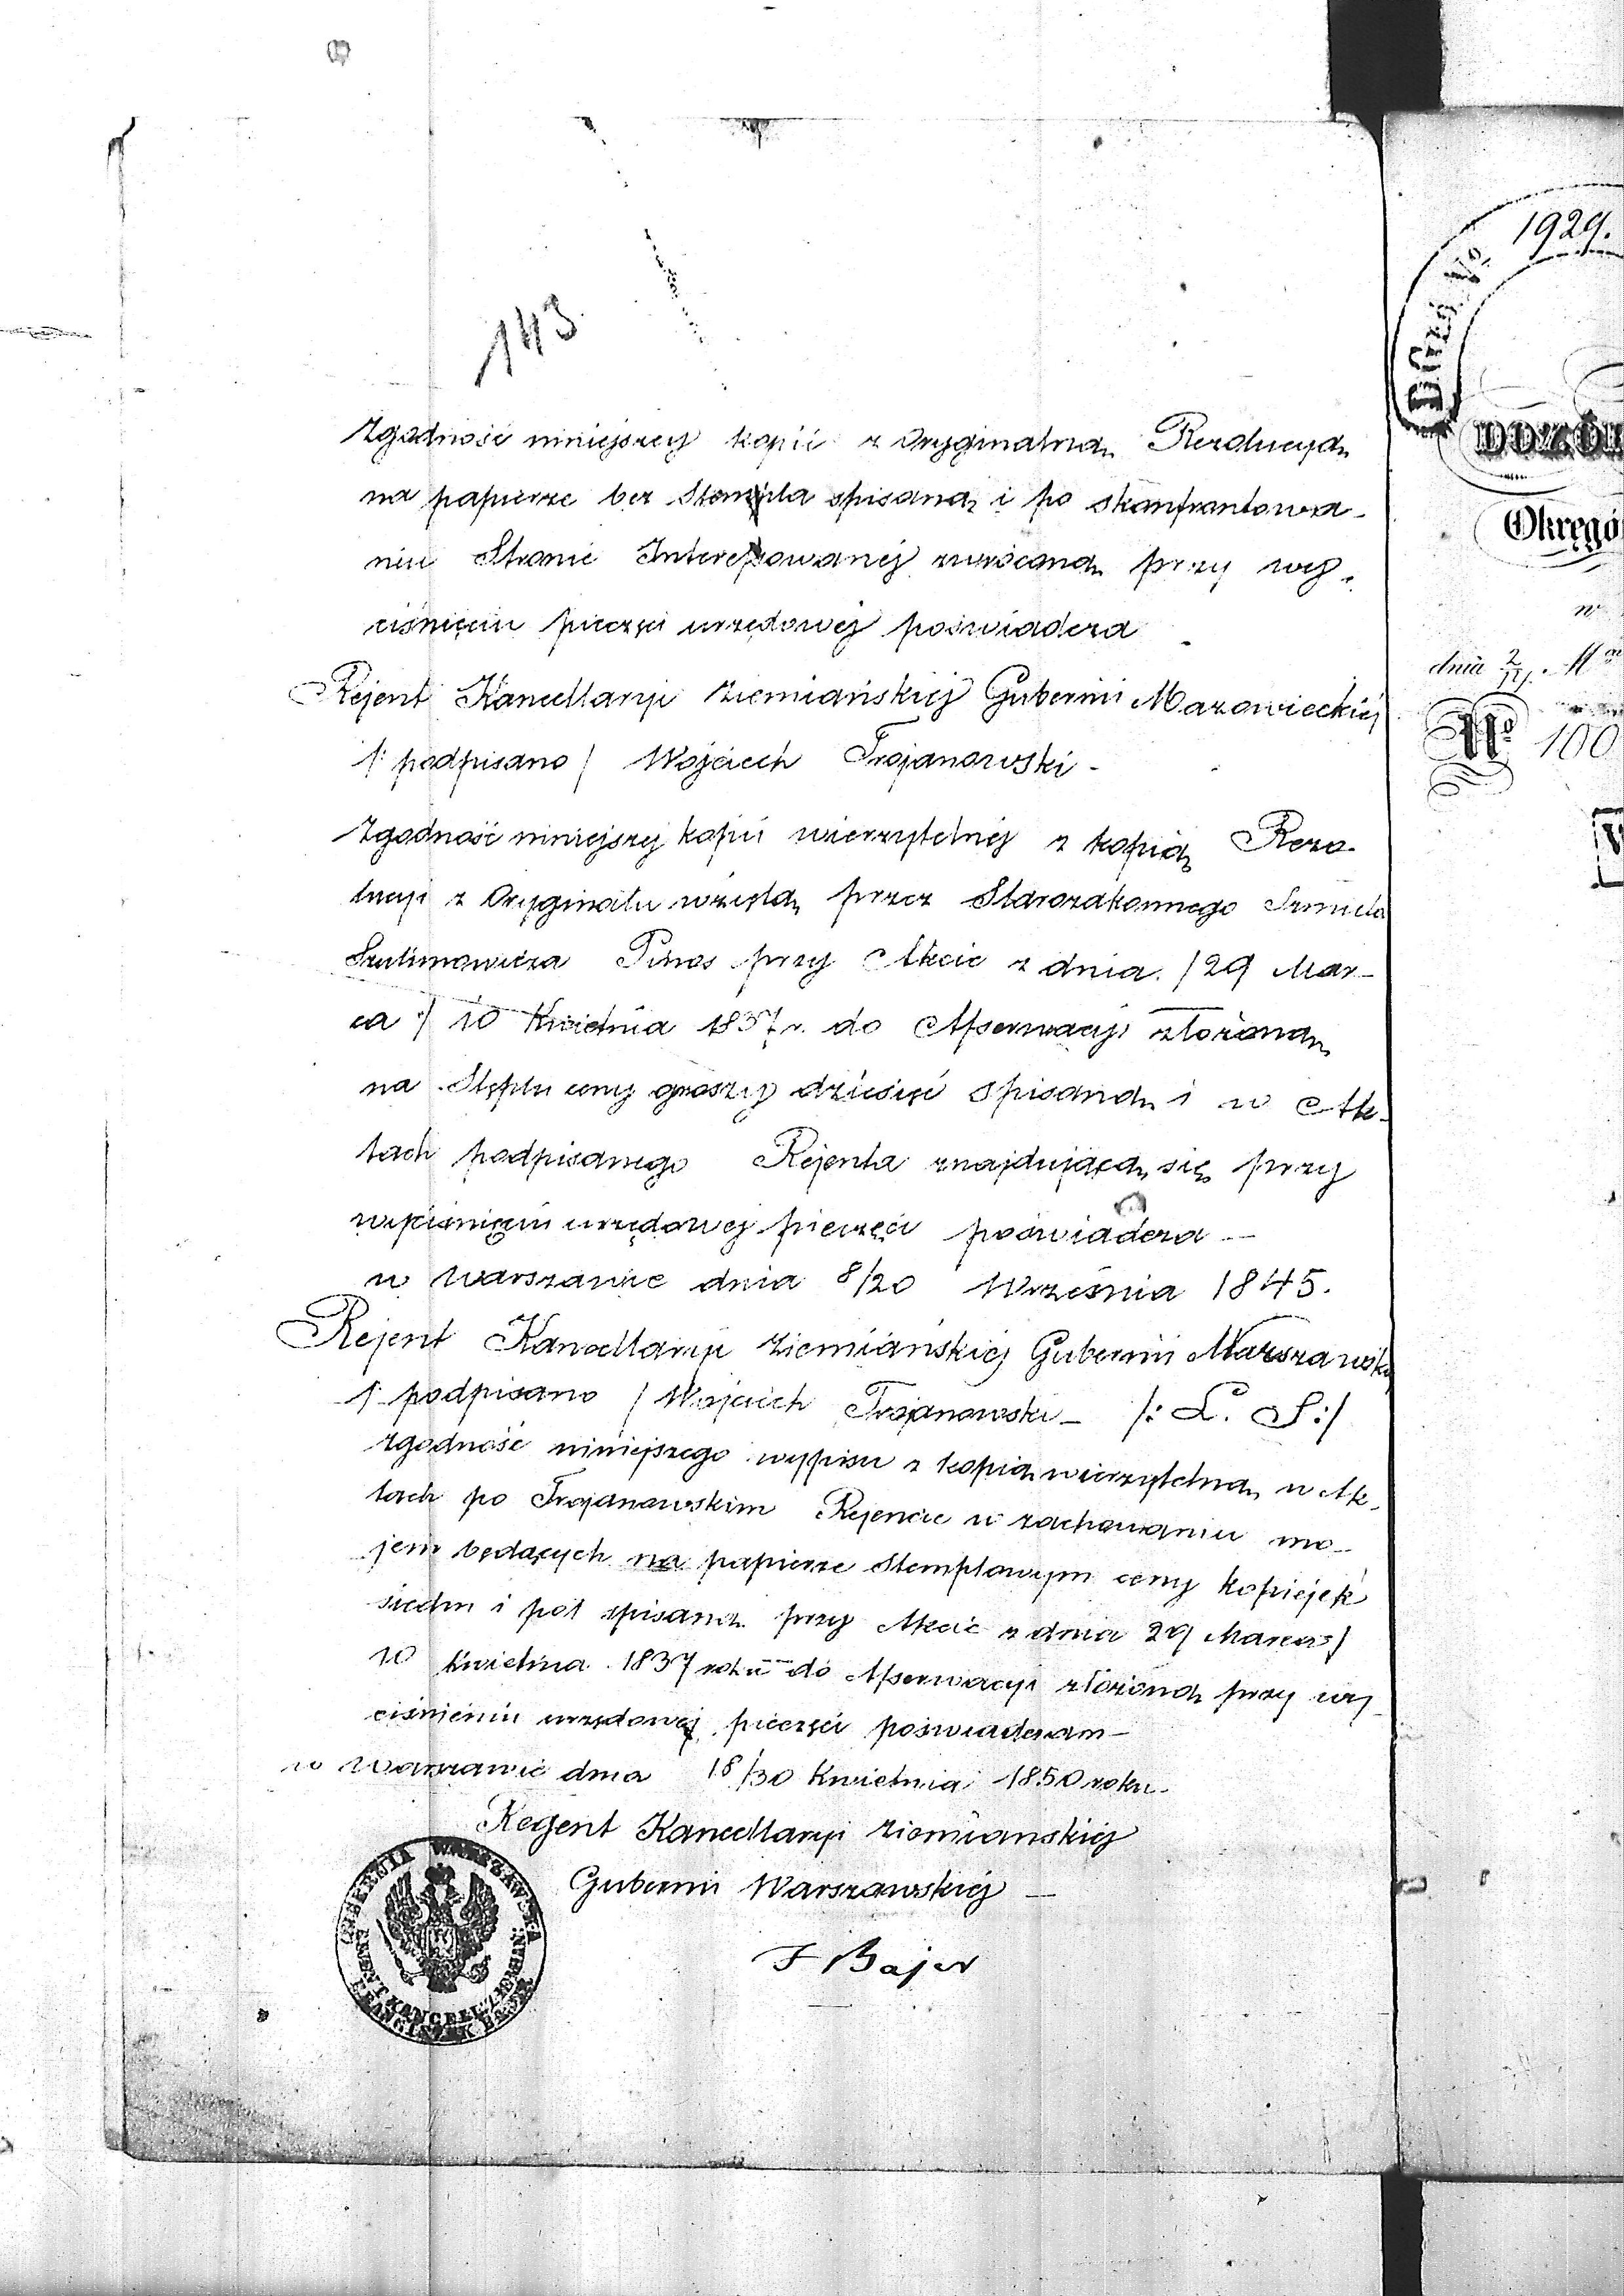 143
Zgodność niniejszey kopii z Oryginalną Rezolucyą
na papierze bez Stempla spisaną i po skonfrontowa-
niu Stronie Interessowanéj zwróconą przy wy-
ciśnięciu pieczęci urzędowéj poświadcza
Rejent Kancellaryi Ziemiańskiéj Gubernii Mazowieckiéj
/: podpisano / Wojciech Trojanowski -
Zgodność niniejszej kopii wierzytelnéj z kopią Rezo-
lucyi z Oryginału wziętą przez Starozakonnego Szmula
Szulimowicza Pines przy Akcie z dnia /29 Mar-
ca / 10 Kwietnia 1837 r. do Asserwacyi złożoną
na Stęplu ceny groszy dziesięć spisaną i w Ak-
tach podpisanego Rejenta znajdującą się przy
wyciśnięciu urzędowej pieczęci poświadcza —
w Warszawie dnia 8/20 Września 1845.
Rejent Kancellaryi Ziemiańskiéj Gubernii Warszawskiéj
/: podpisano / Wojciech Trojanowski - /: L. S :/
Zgodność niniejszego wypisu z kopią wierzytelną w Ak-
tach po Trojanowskim Rejencie w zachowaniu mo-
jem będących na papierze Stemplowym ceny kopiejek
siedm i pół spisaną przy Akcie z dnia 29 Marca /
10 Kwietnia 1837 roku do Asserwacyi złożoną przy wy-
ciśnieniu urzędowej pieczęci poświadczam —
w Warszawie dnia 18/30 Kwietnia 1850 roku.
Regent Kancellaryi Ziemianskiéj
Gubernii Warszawskiéj —
F Bajer
GUBERNIA WARSZAWSKA
REJENT KANCELL: ZIEMIAŃ:
FRANCISZEK BAJER
1929.
No
DOZÓR
Okręgó
w
dnia 2/
No 100